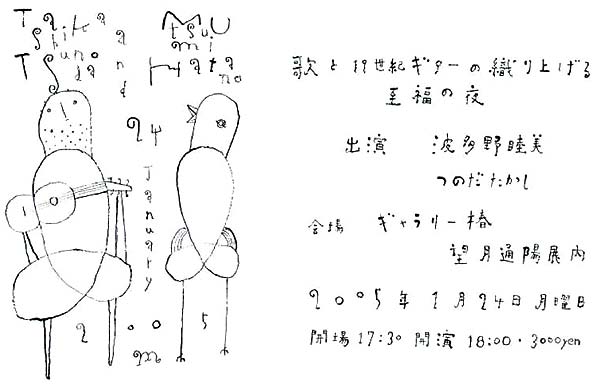 Takashi
Tsunoda
and
Mutsumi
Hatano
24
January
2005
歌と19世紀ギターの織り上げる
至福の夜
出演 波多野睦美
つのだたかし
会場 ギャラリー椿
望月通陽展内
2005年1月24日月曜日
開場17:30 開演18:00・3000yen